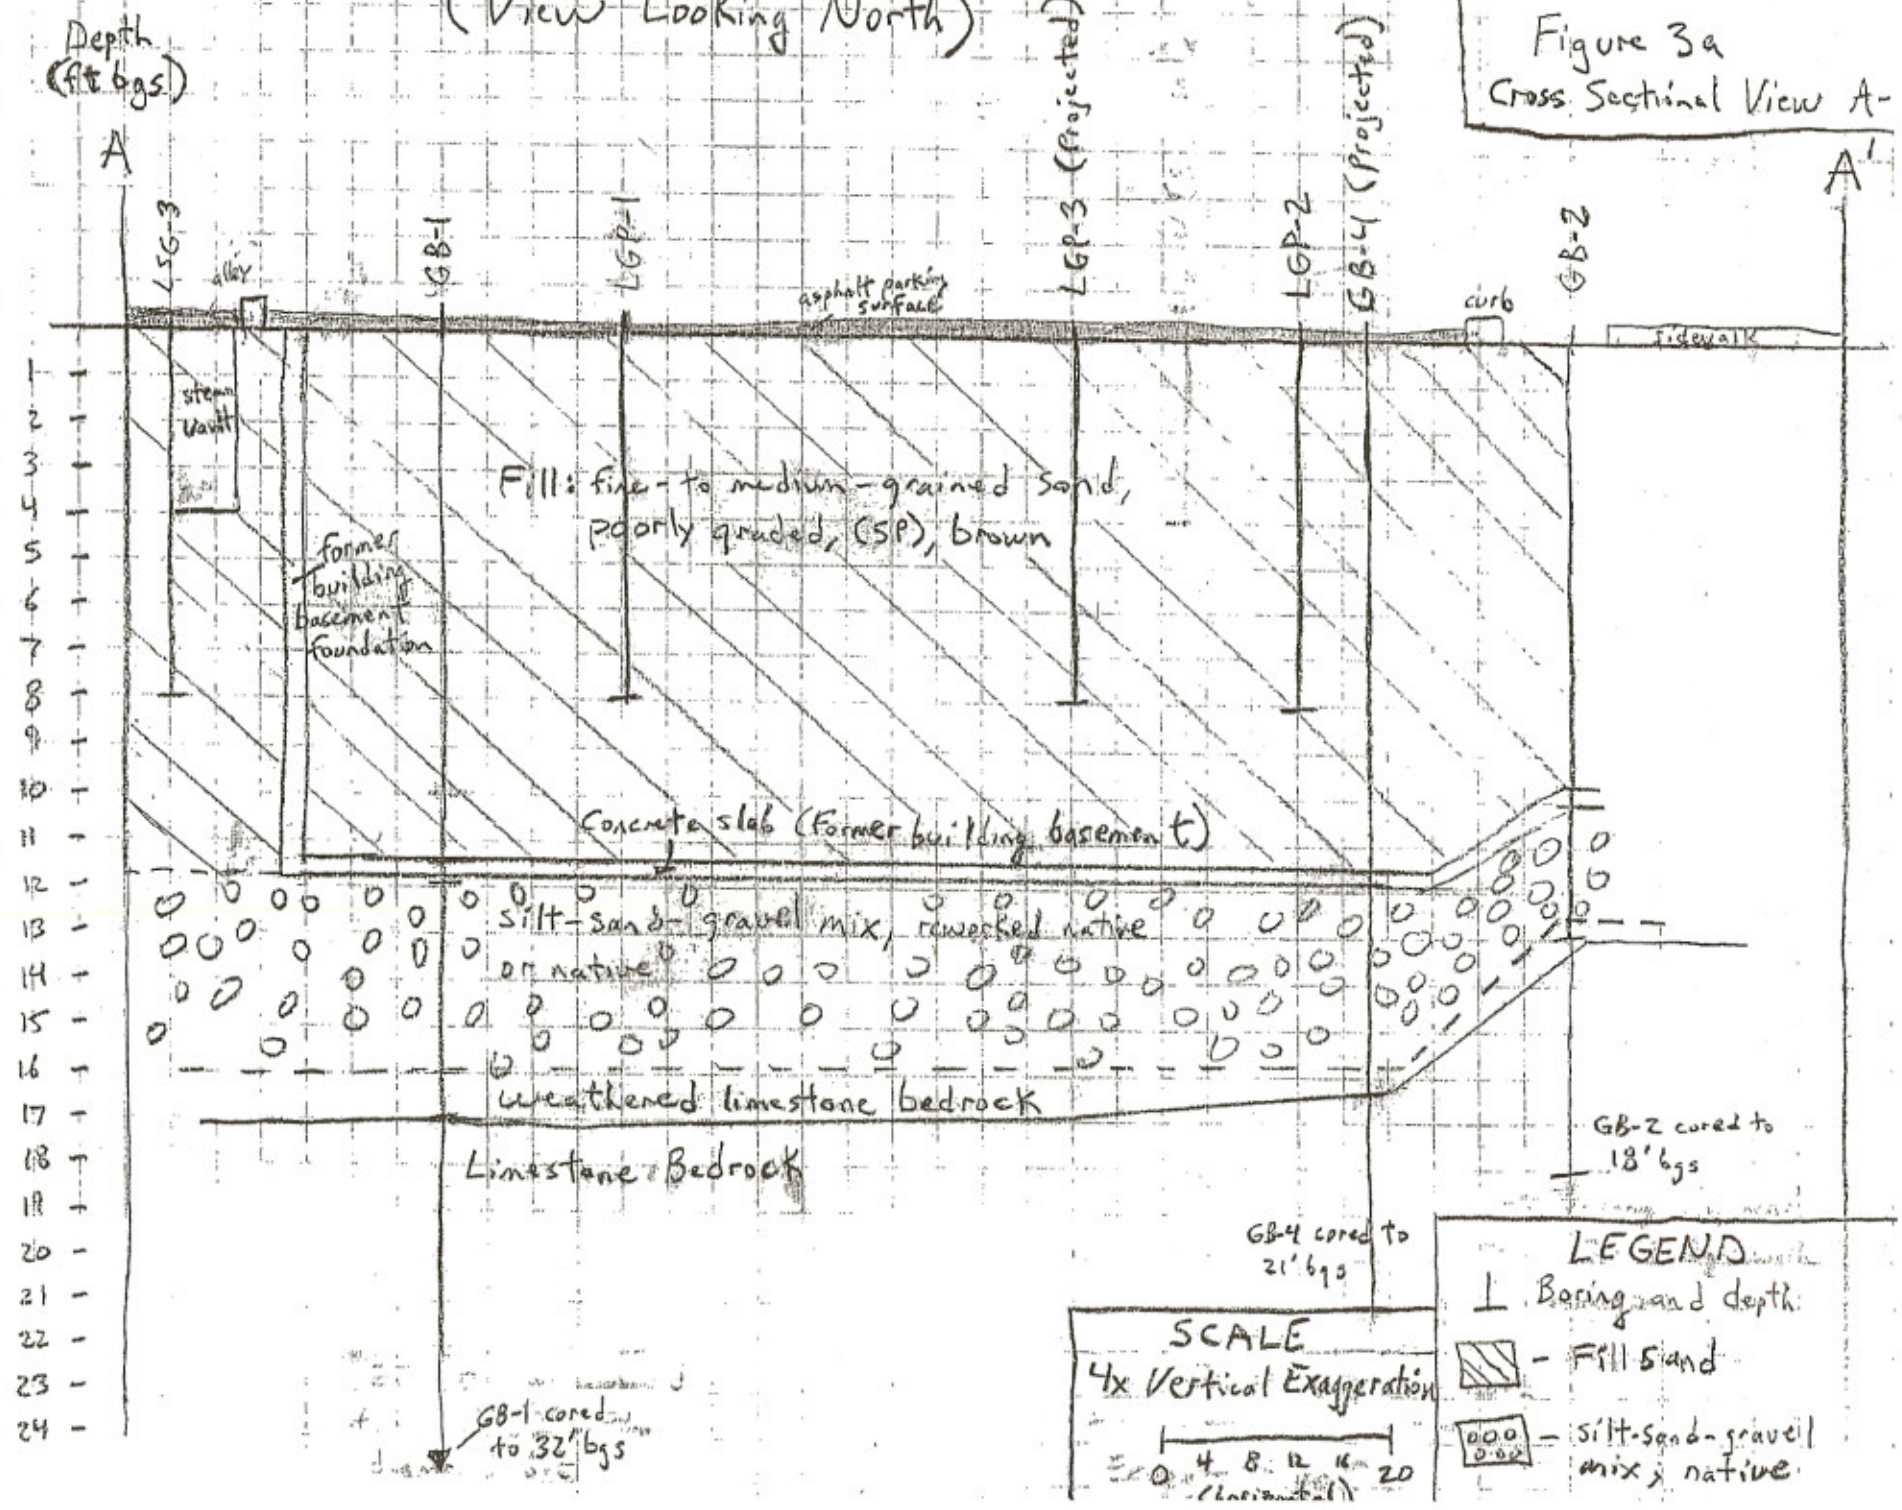 (View Looking North)
Depth
(ft bgs)
Figure 3a
Cross Sectional View A-
A
A'
LSG-3
alley
GB-1
LGP-1
asphalt parking
surface
LGP-3 (Projected)
LGP-2
GB-4 (Projected)
curb
GB-2
sidewalk
1
2
3
4
5
6
7
8
9
10
11
12
13
14
15
16
17
18
19
20
21
22
23
24
steam
vault
Fill: fine- to medium-grained sand,
poorly graded, (SP), brown
former
building
basement
foundation
Concrete slab (Former building basement)
silt-sand-gravel mix, reworked native
or native
weathered limestone bedrock
Limestone Bedrock
GB-2 cored to
18' bgs
GB-4 cored to
21' bgs
GB-1 cored
to 32' bgs
SCALE
4x Vertical Exaggeration
0 4 8 12 16 20
(horizontal)
LEGEND
Boring and depth
- Fill Sand
- silt-sand-gravel
mix, native